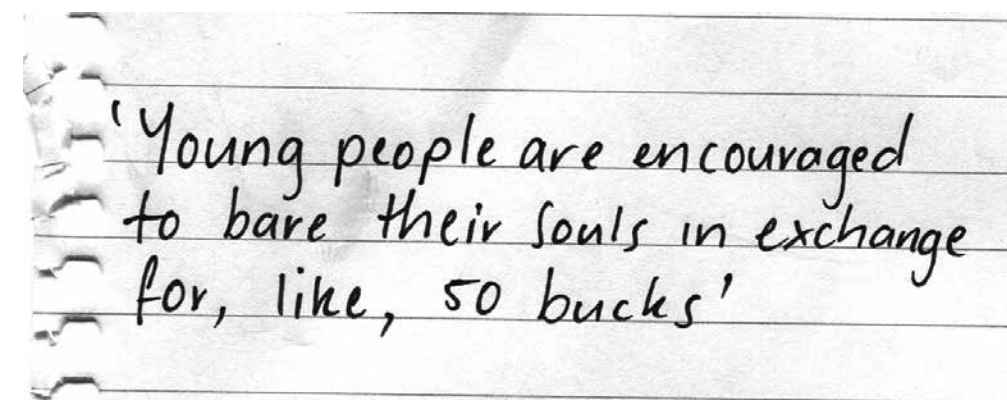 'Young people are encouraged
to bare their souls in exchange
for, like, 50 bucks'